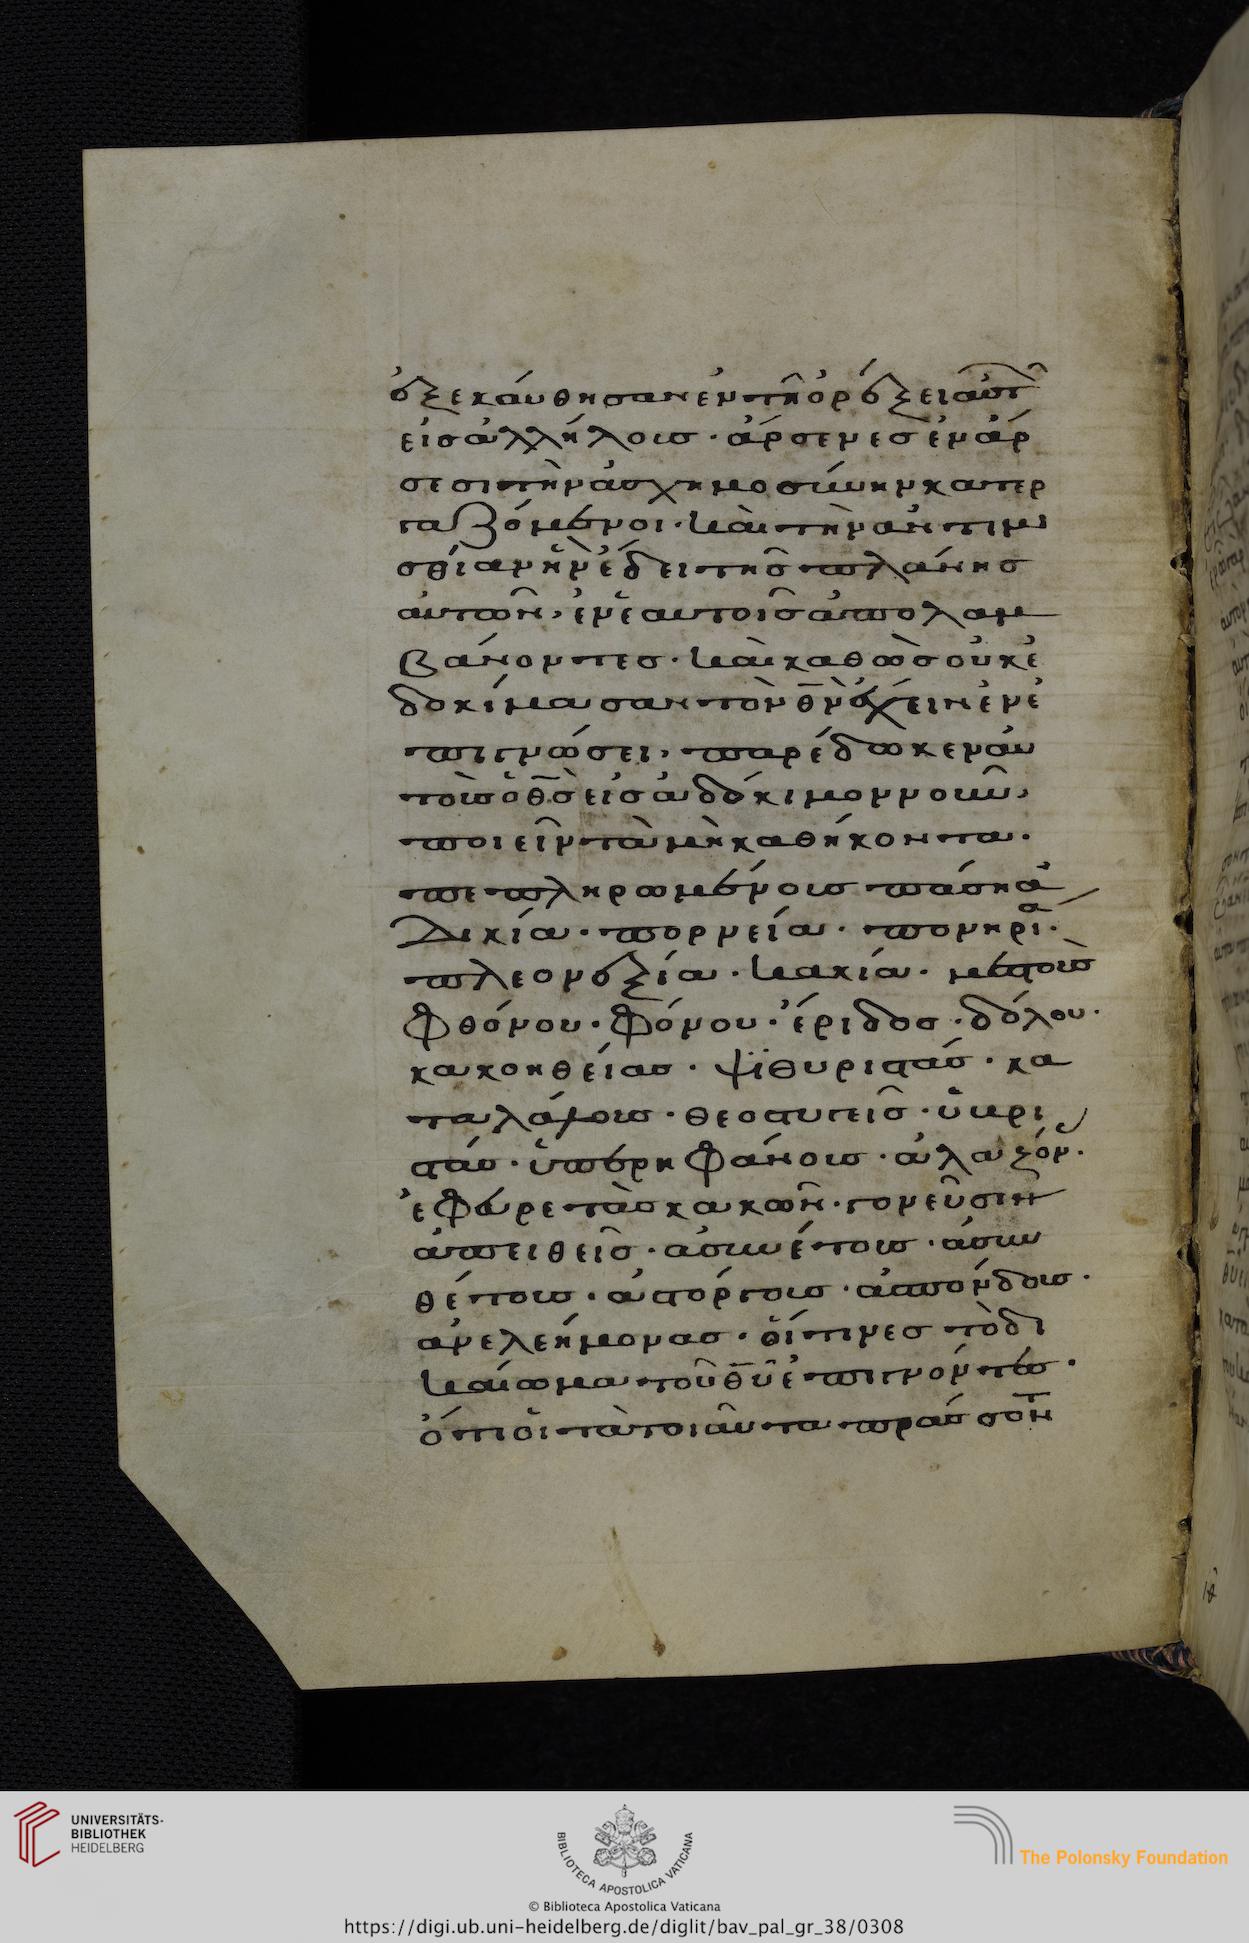 ἐξεκάυθησαν ἐν τῆ ὀρέξει αὐτ
εἰς ἀλλήλους · ἄρσενες ἐν ἄρ
σεσι τὴν ἀσχημοσύνην κατερ
γαζόμενοι · καὶ τὴν ἀντιμι
σθίαν ἣν ἔδει τῆς πλάνης
αὐτῶν, ἐν ἑαυτοῖς ἀπολαμ
βάνοντες · καὶ καθὼς οὐκ ἐ
δοκίμασαν τὸν θ̅ν̅ ἔχειν ἐν ἐ
πιγνώσει, παρέδωκεν αὐ
τοὺς ὁ θ̅ς̅ εἰς ἀδόκιμον νοῦν,
ποιεῖν τὰ μὴ καθήκοντα ·
πεπληρωμένους πάσῃ ἀ
δικία · πορνεία · πονηρία ·
πλεονεξία · κακία · μεστοὺς
φθόνου · φόνου · ἔριδος · δόλου ·
κακοηθείας · ψϊθυριστάς · κα
ταλάλους · θεοστυγεῖς · ὑβρι
στάς · ὑπερηφάνους · ἀλαζόν ·
ἐφευρετὰς κακῶν · γονεῦσιν
ἀπειθεῖς · ἀσυνέτους · ἀσυν
θέτους · ἀστόργους · ἀσπόνδους ·
ἀνελεήμονας · οἵτινες τὸ δι
καίωμα τοῦ θ̅υ̅ ἐπιγνόντες ·
ὅτι οἱ τὰ τοιαῦτα πράσσον
UNIVERSITÄTS-
BIBLIOTHEK
HEIDELBERG
BIBLIOTECA APOSTOLICA VATICANA
The Polonsky Foundation
© Biblioteca Apostolica Vaticana
https://digi.ub.uni-heidelberg.de/diglit/bav_pal_gr_38/0308